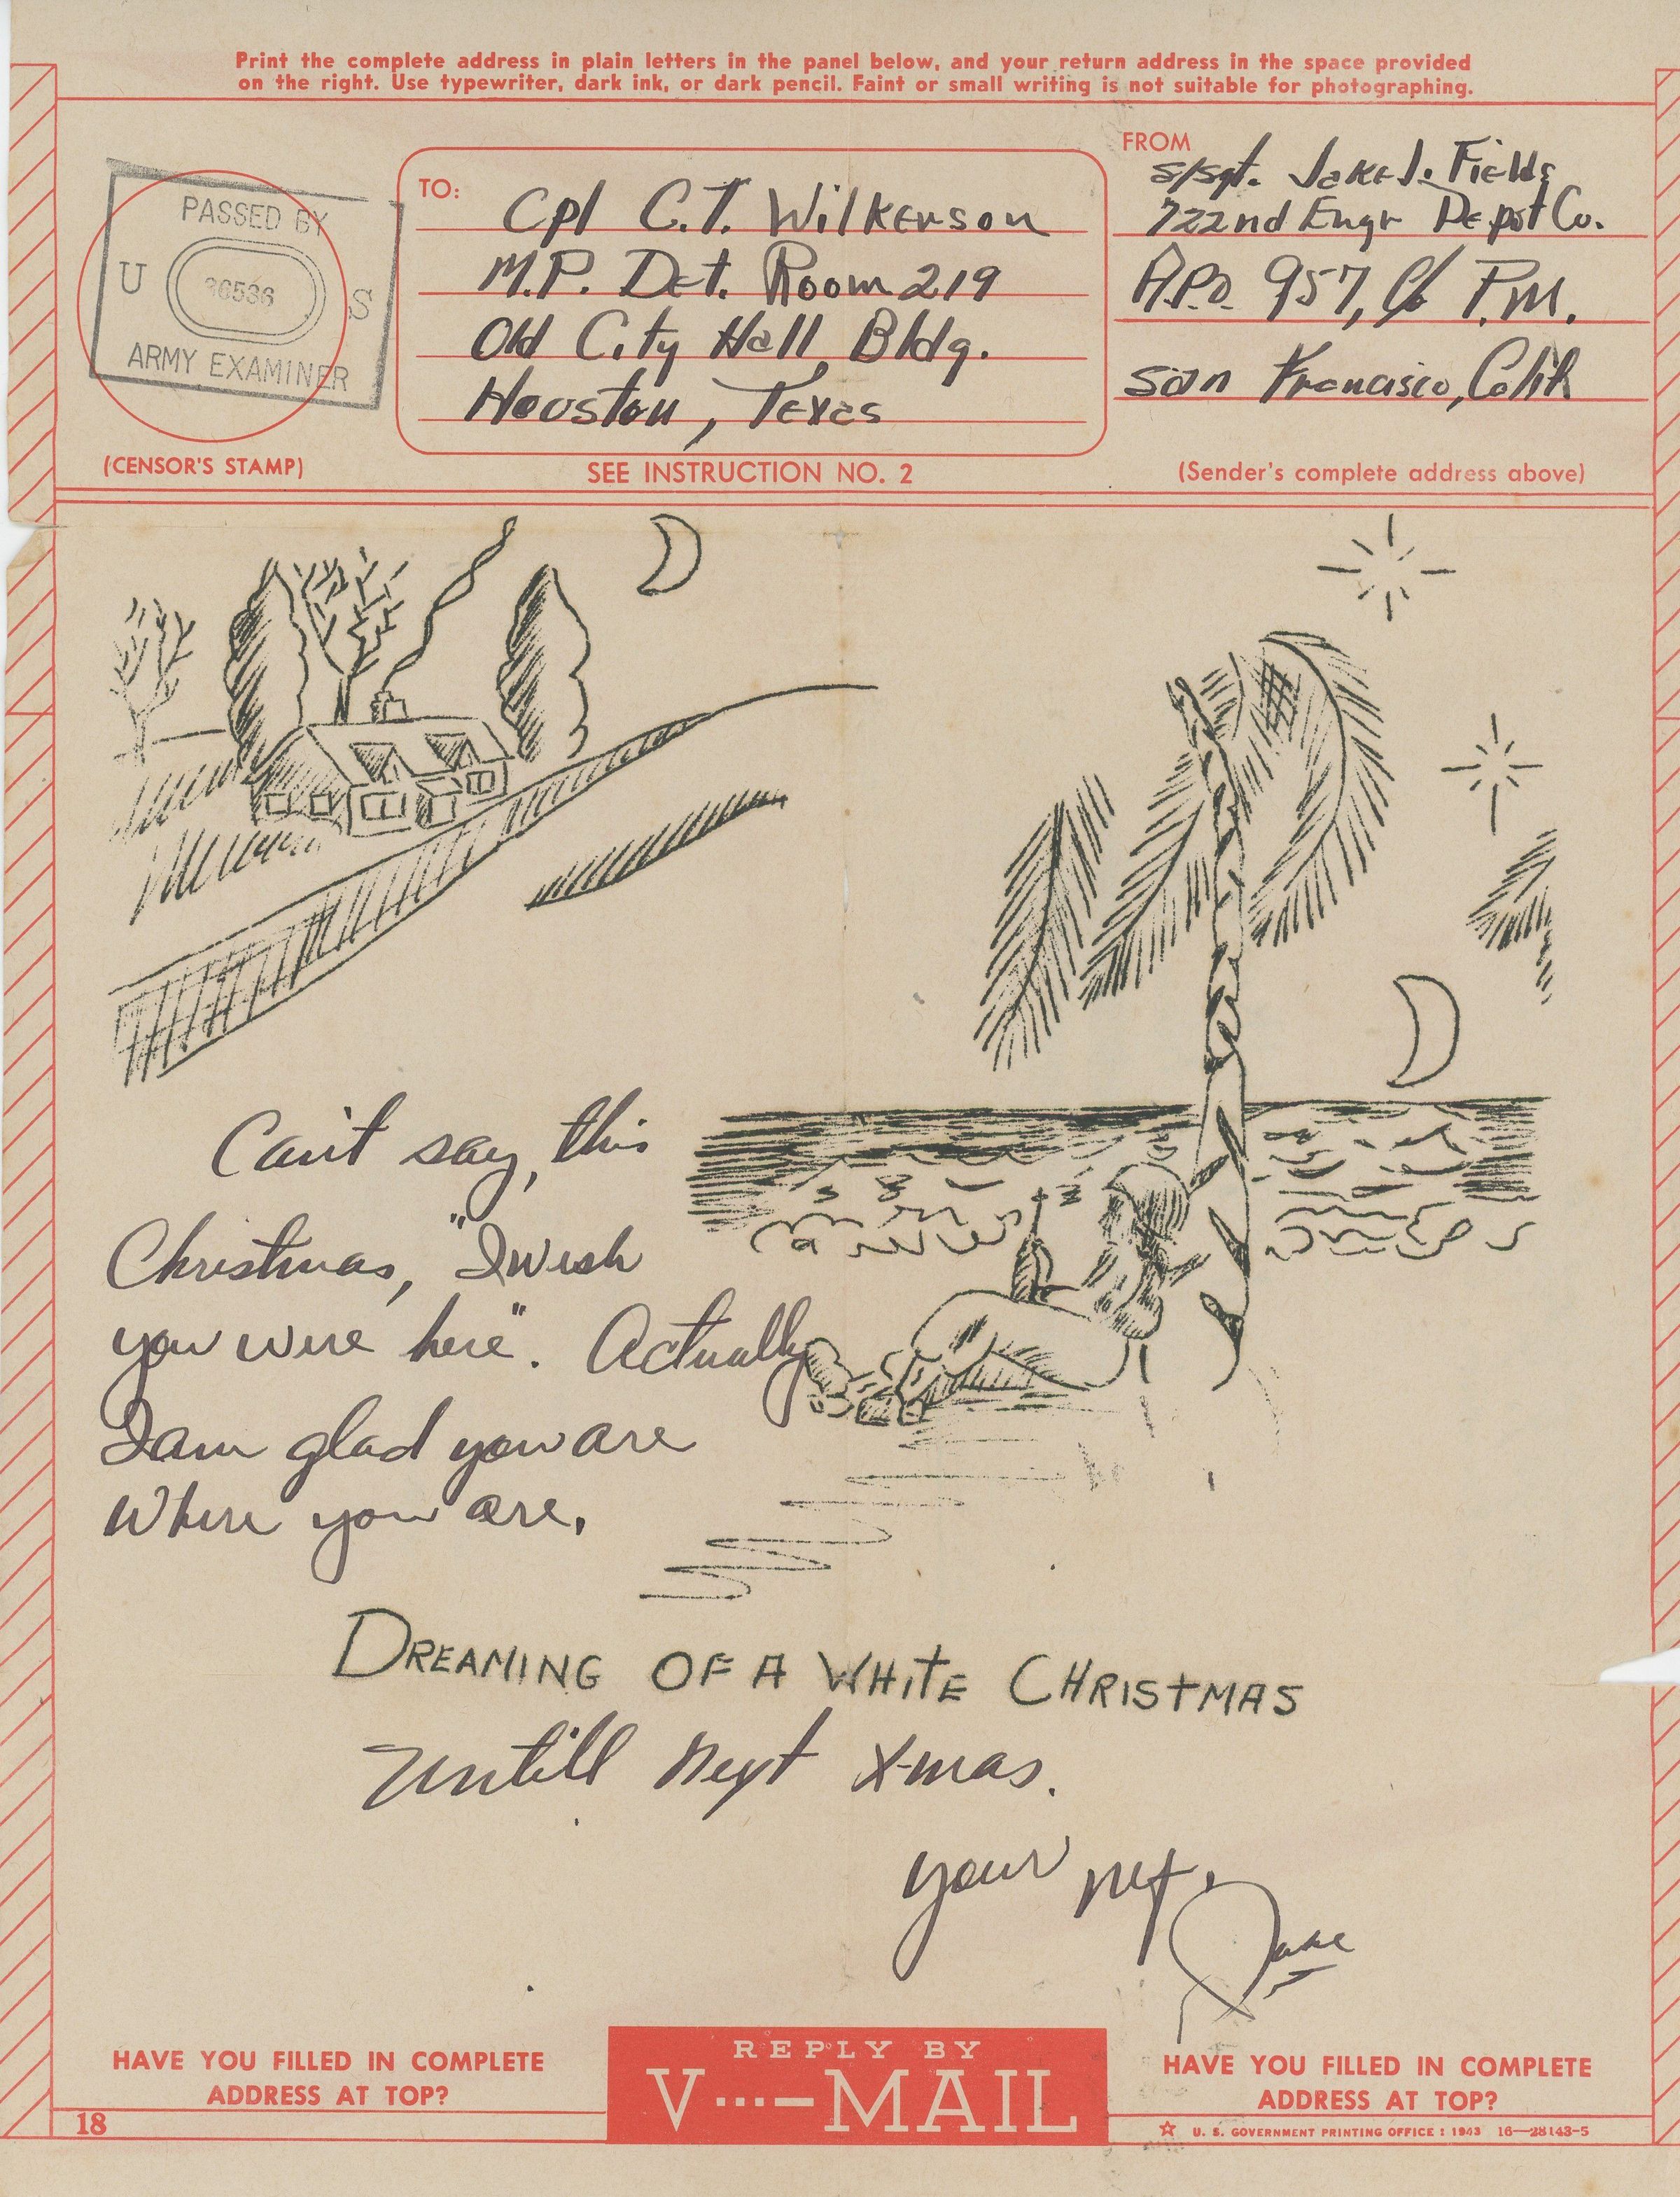 Print the complete address in plain letters in the panel below, and your return address in the space provided
on the right. Use typewriter, dark ink, or dark pencil. Faint or small writing is not suitable for photographing.
PASSED BY
U S
ARMY EXAMINER
(CENSOR'S STAMP)
TO:
Cpl C.T. Wilkerson
M.P. Det. Room 219
Old City Hall Bldg.
Houston, Texas
SEE INSTRUCTION NO. 2
FROM
S/Sgt. Jake J. Fields
722nd Engr Depot Co.
A.P.O. 957, c/o P.M.
San Francisco, Calif
(Sender's complete address above)
Can't say, this
Christmas, "I wish
you were here". Actually
I am glad you are
Where you are.
DREAMING OF A WHITE CHRISTMAS
Untill next X-mas.
your
Jake
HAVE YOU FILLED IN COMPLETE
ADDRESS AT TOP?
REPLY BY
V···—MAIL
HAVE YOU FILLED IN COMPLETE
ADDRESS AT TOP?
18
☆ U. S. GOVERNMENT PRINTING OFFICE : 1943 16—28143-5